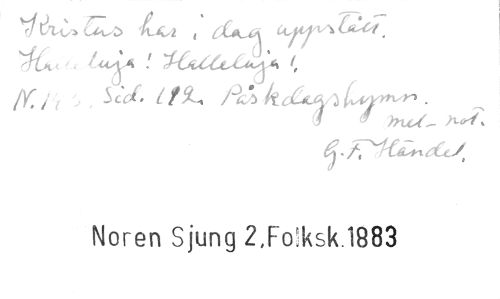 Kristus har i dag uppstått.
Halleluja! Halleluja!
Sid. 112. Påskdagshymn.
mel-not.
G.F. Händel.
Noren Sjung 2,Folksk.1883